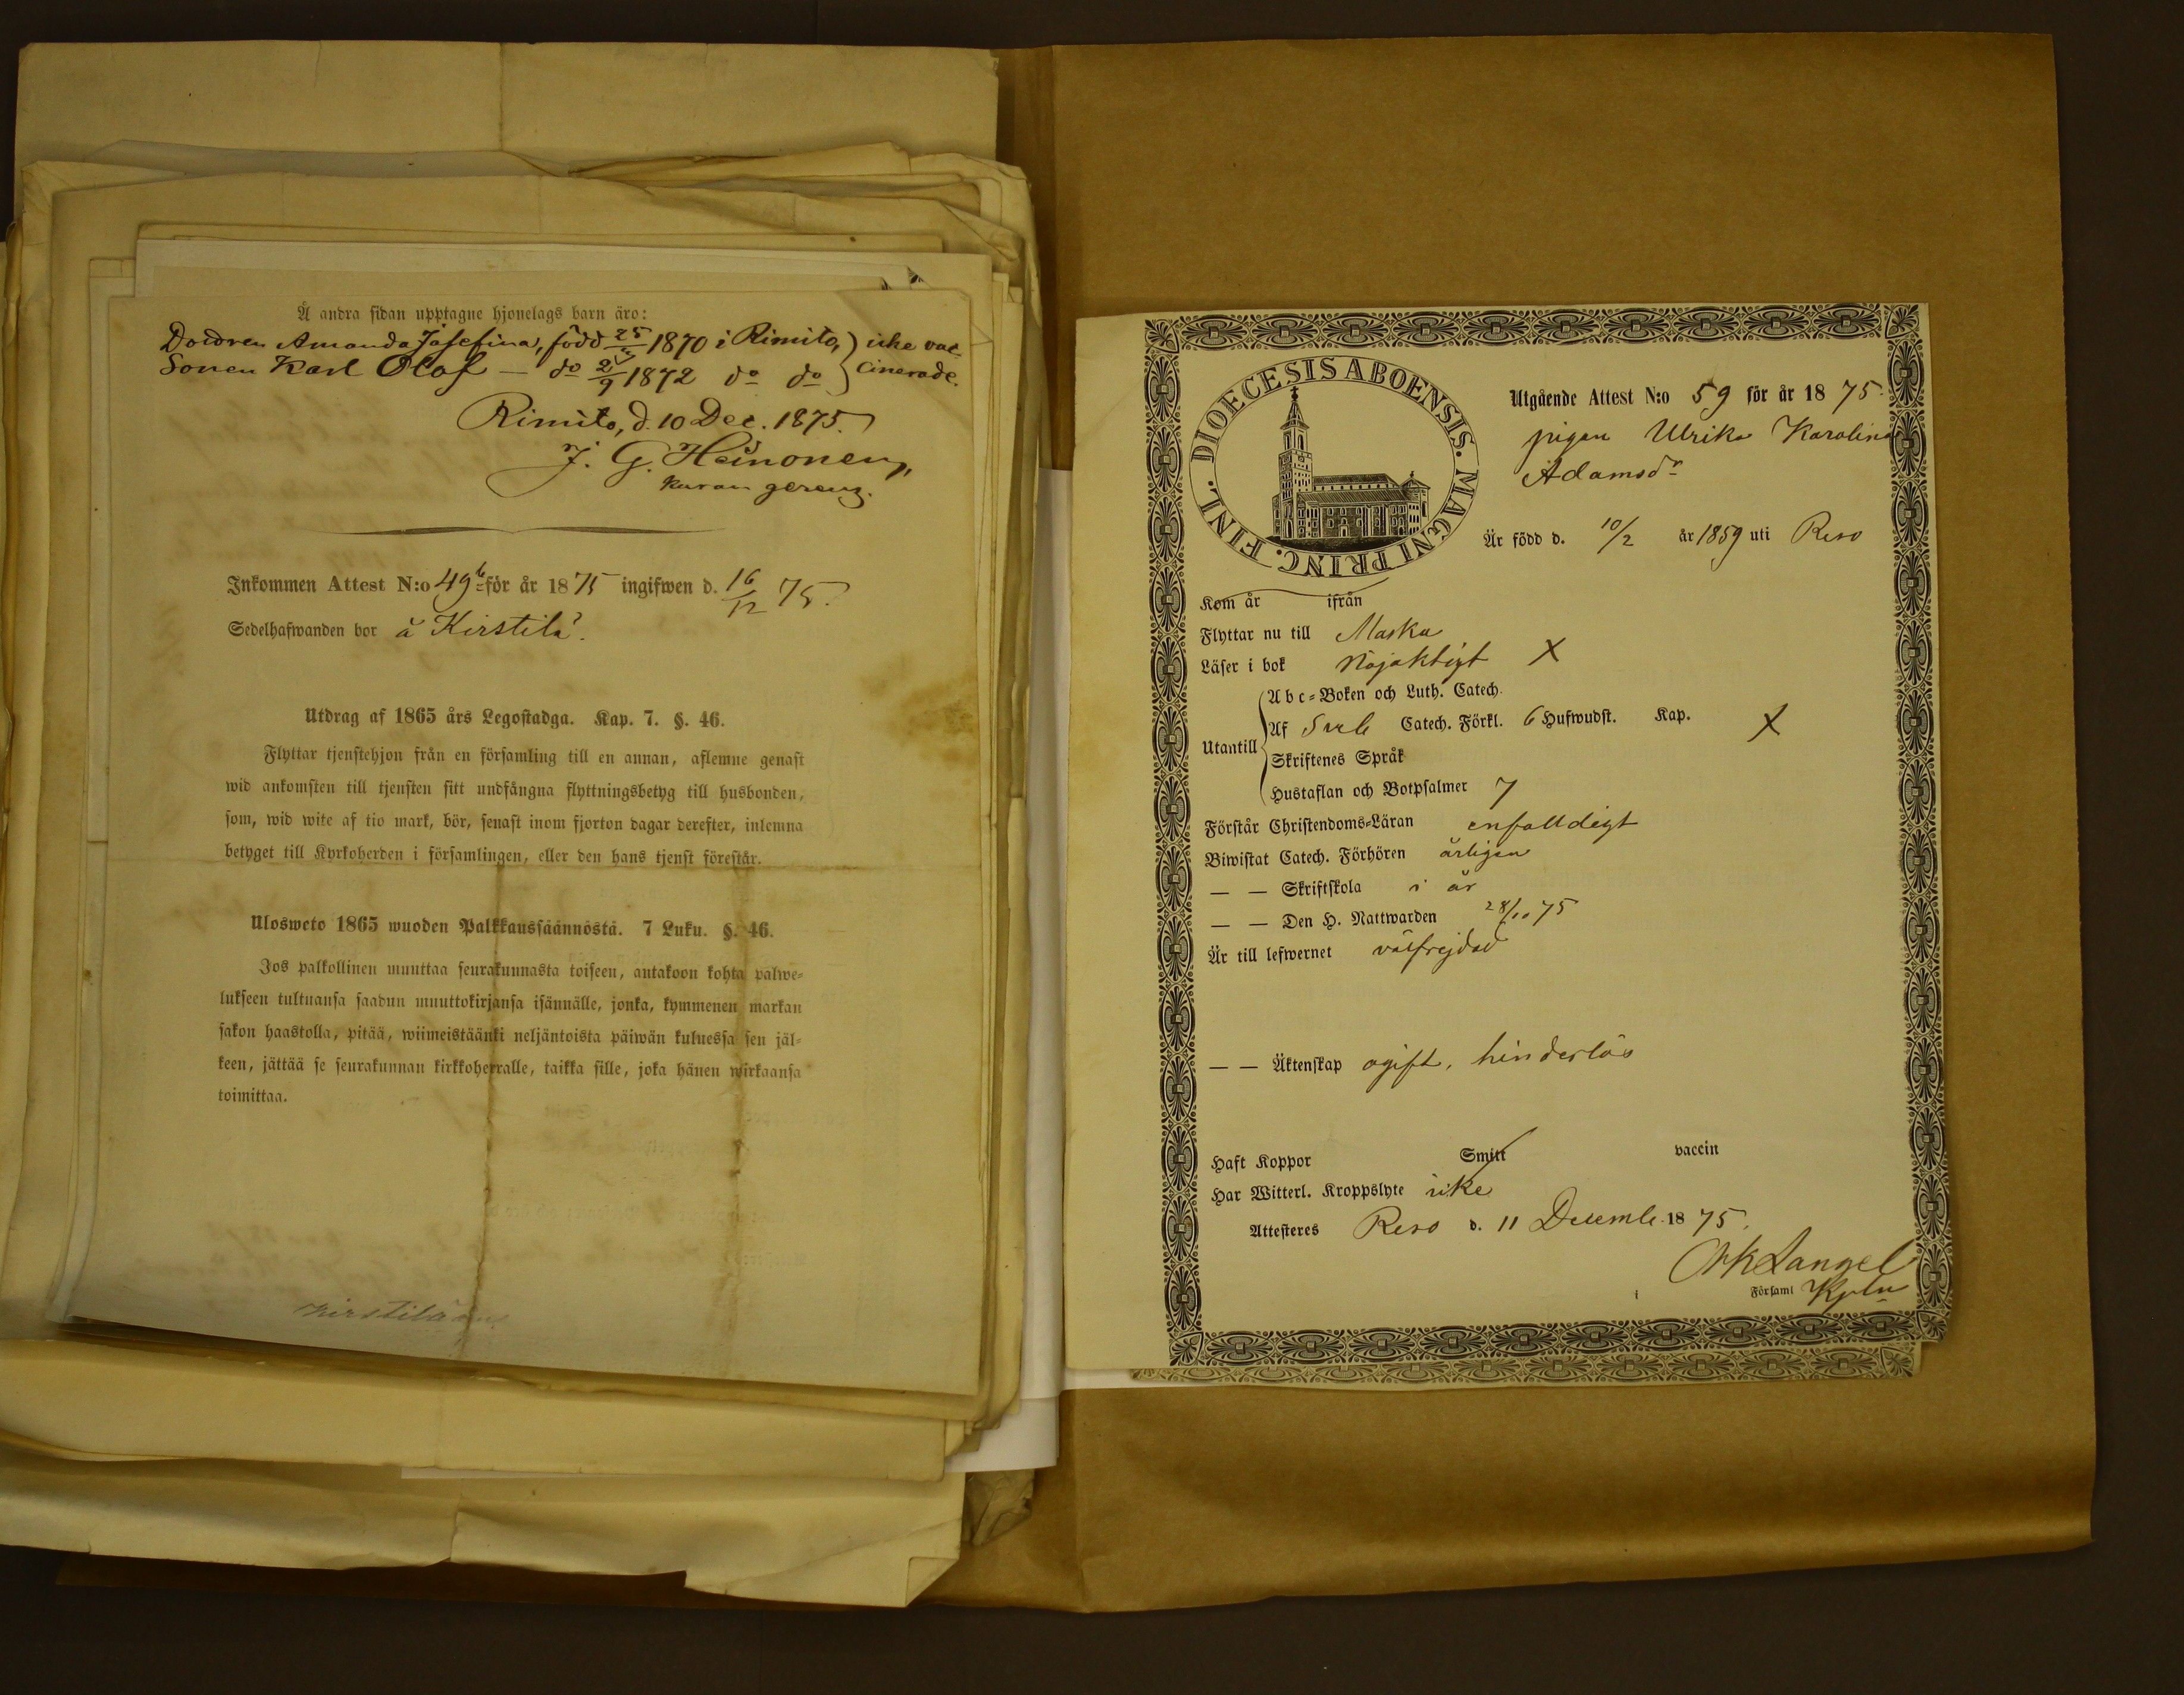 Å andra sidan upptagne hjonelags barn äro:
Dottren Amanda Josefina, född 25/ 1870 i Rimito, } icke vac
Sonen Karl Olof — do 2/9 1872 do do } cinerade.
Rimito, d. 10 Dec. 1875.
J. G. Heinonen,
kuran gerenz.
Inkommen Attest N:o 49 b för år 1875 ingifwen d. 16/12 75.
Sedelhafwanden bor å Kirstilä.
Utdrag af 1865 års Legostadga. Kap. 7. §. 46.
Flyttar tjenstehjon från en församling till en annan, aflemne genast
wid ankomsten till tjensten sitt undfångna flyttningsbetyg till husbonden,
som, wid wite af tio mark, bör, senast inom fjorton dagar derefter, inlemna
betyget till Kyrkoherden i församlingen, eller den hans tjenst förestår.
Ulosweto 1865 wuoden Palkkaussäännöstä. 7 Luku. §. 46.
Jos palkollinen muuttaa seurakunnasta toiseen, antakoon kohta palwe-
lukseen tultuansa saadun muuttokirjansa isännälle, jonka, kymmenen markan
sakon haastolla, pitää, wiimeistäänki neljäntoista päiwän kuluessa sen jäl-
keen, jättää se seurakunnan kirkkoherralle, taikka sille, joka hänen wirkaansa
toimittaa.
DIOECESIS ABOENSIS. MAGNI PRINC. FINL.
Utgående Attest N:o 59 för år 1875.
pigan Ulrika Karolina
Adamsdr
Är född d. 10/2 år 1859 uti Reso
Kom år ifrån
Flyttar nu till Masku
Läser i bok Nöjaktigt X
Utantill
Abc-Boken och Luth. Catech.
Af Sveb Catech. Förkl. 6 Hufwudst. Kap. X
Skriftenes Språk
Hustaflan och Botpsalmer 7
Förstår Christendoms-Läran enfalldigt
Biwistat Catech. Förhören årligen
— — Skriftskola i år
— — Den H. Nattwarden 28/10 75
Är till lefwernet välfrejdad
— — Äktenskap ogift, hinderlös
Haft Koppor Smitt vaccin
Har Witterl. Kroppslyte icke
Attesteres Reso d. 11 Decemb. 1875.
i Församl Kpln